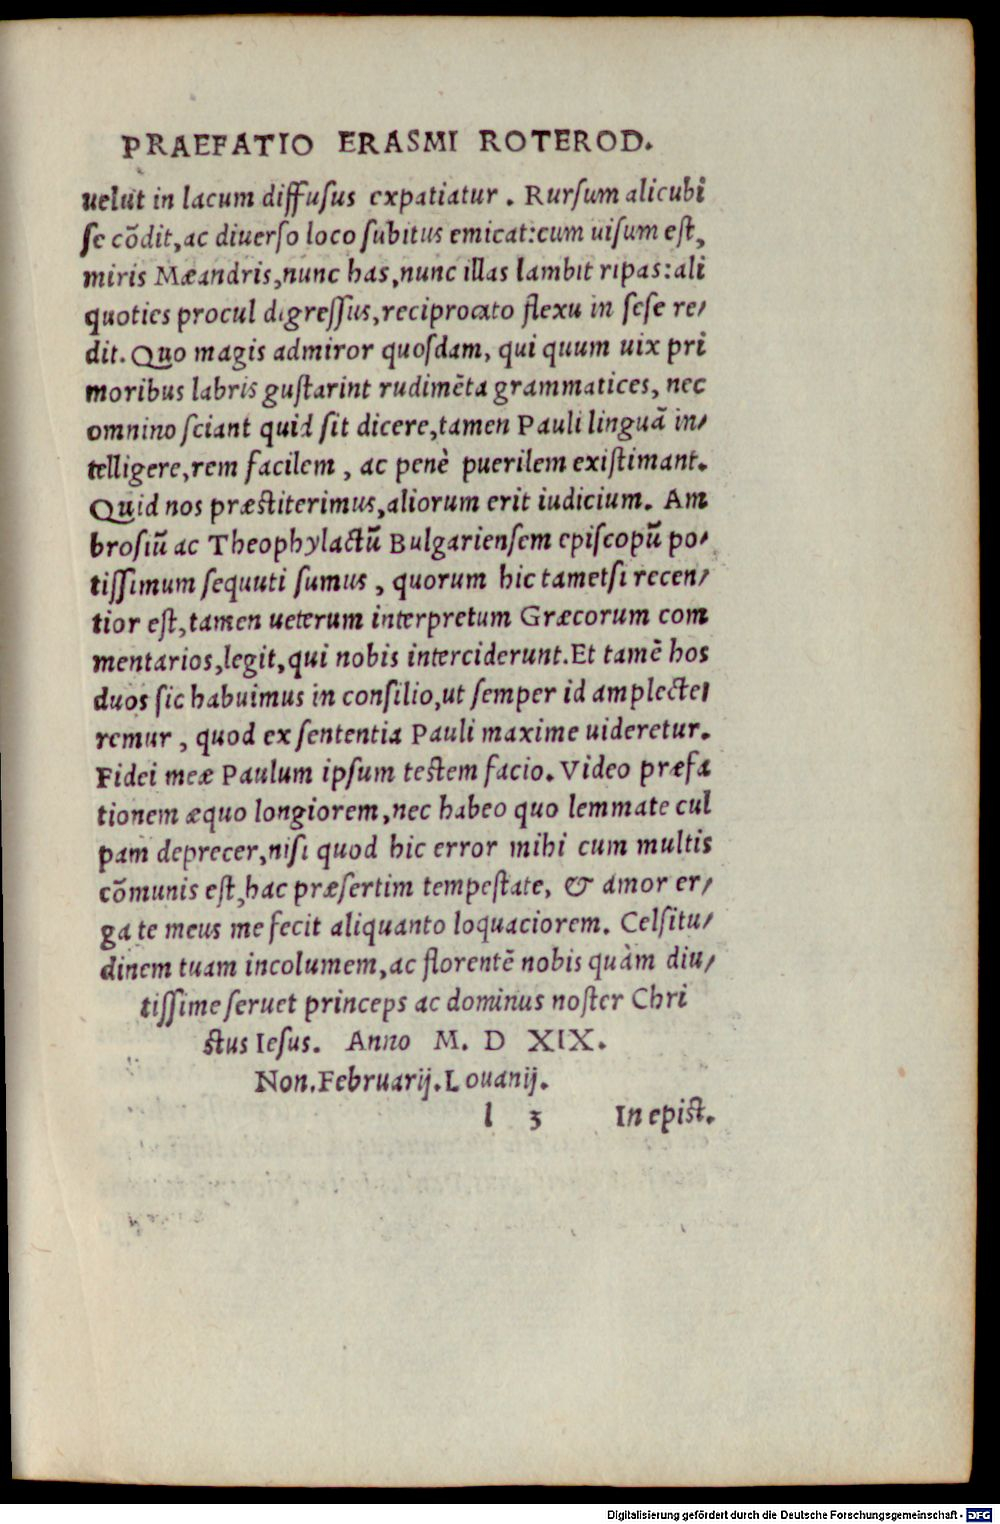 PRAEFATIO ERASMI ROTEROD.
uelut in lacum diffuſus expatiatur. Rurſum alicubi
ſe cõdit, ac diuerſo loco ſubitus emicat: cum uiſum eſt,
miris Mæandris, nunc has, nunc illas lambit ripas: ali
quoties procul digreſſus, reciprocato flexu in ſeſe re⸗
dit. Quo magis admiror quoſdam, qui quum uix pri
moribus labris guſtarint rudimẽta grammatices, nec
omnino ſciant quid ſit dicere, tamen Pauli linguã in⸗
telligere, rem facilem, ac penè puerilem exiſtimant.
Quid nos præſtiterimus, aliorum erit iudicium. Am
broſiũ ac Theophylactũ Bulgarienſem epiſcopũ po⸗
tiſſimum ſequuti ſumus, quorum hic tametſi recen⸗
tior eſt, tamen ueterum interpretum Græcorum com
mentarios, legit, qui nobis interciderunt. Et tamẽ hos
duos ſic habuimus in conſilio, ut ſemper id amplecte⸗
remur, quod ex ſententia Pauli maxime uideretur.
Fidei meæ Paulum ipſum teſtem facio. Video præfa
tionem æquo longiorem, nec habeo quo lemmate cul
pam deprecer, niſi quod hic error mihi cum multis
cõmunis eſt, hac præſertim tempeſtate, & amor er⸗
ga te meus me fecit aliquanto loquaciorem. Celſitu⸗
dinem tuam incolumem, ac florentẽ nobis quàm diu⸗
tiſſime ſeruet princeps ac dominus noſter Chri
ſtus Ieſus. Anno M. D XIX.
Non. Februarij. Louanij.
l 3 In epiſt.
Digitalisierung gefördert durch die Deutsche Forschungsgemeinschaft - DFG